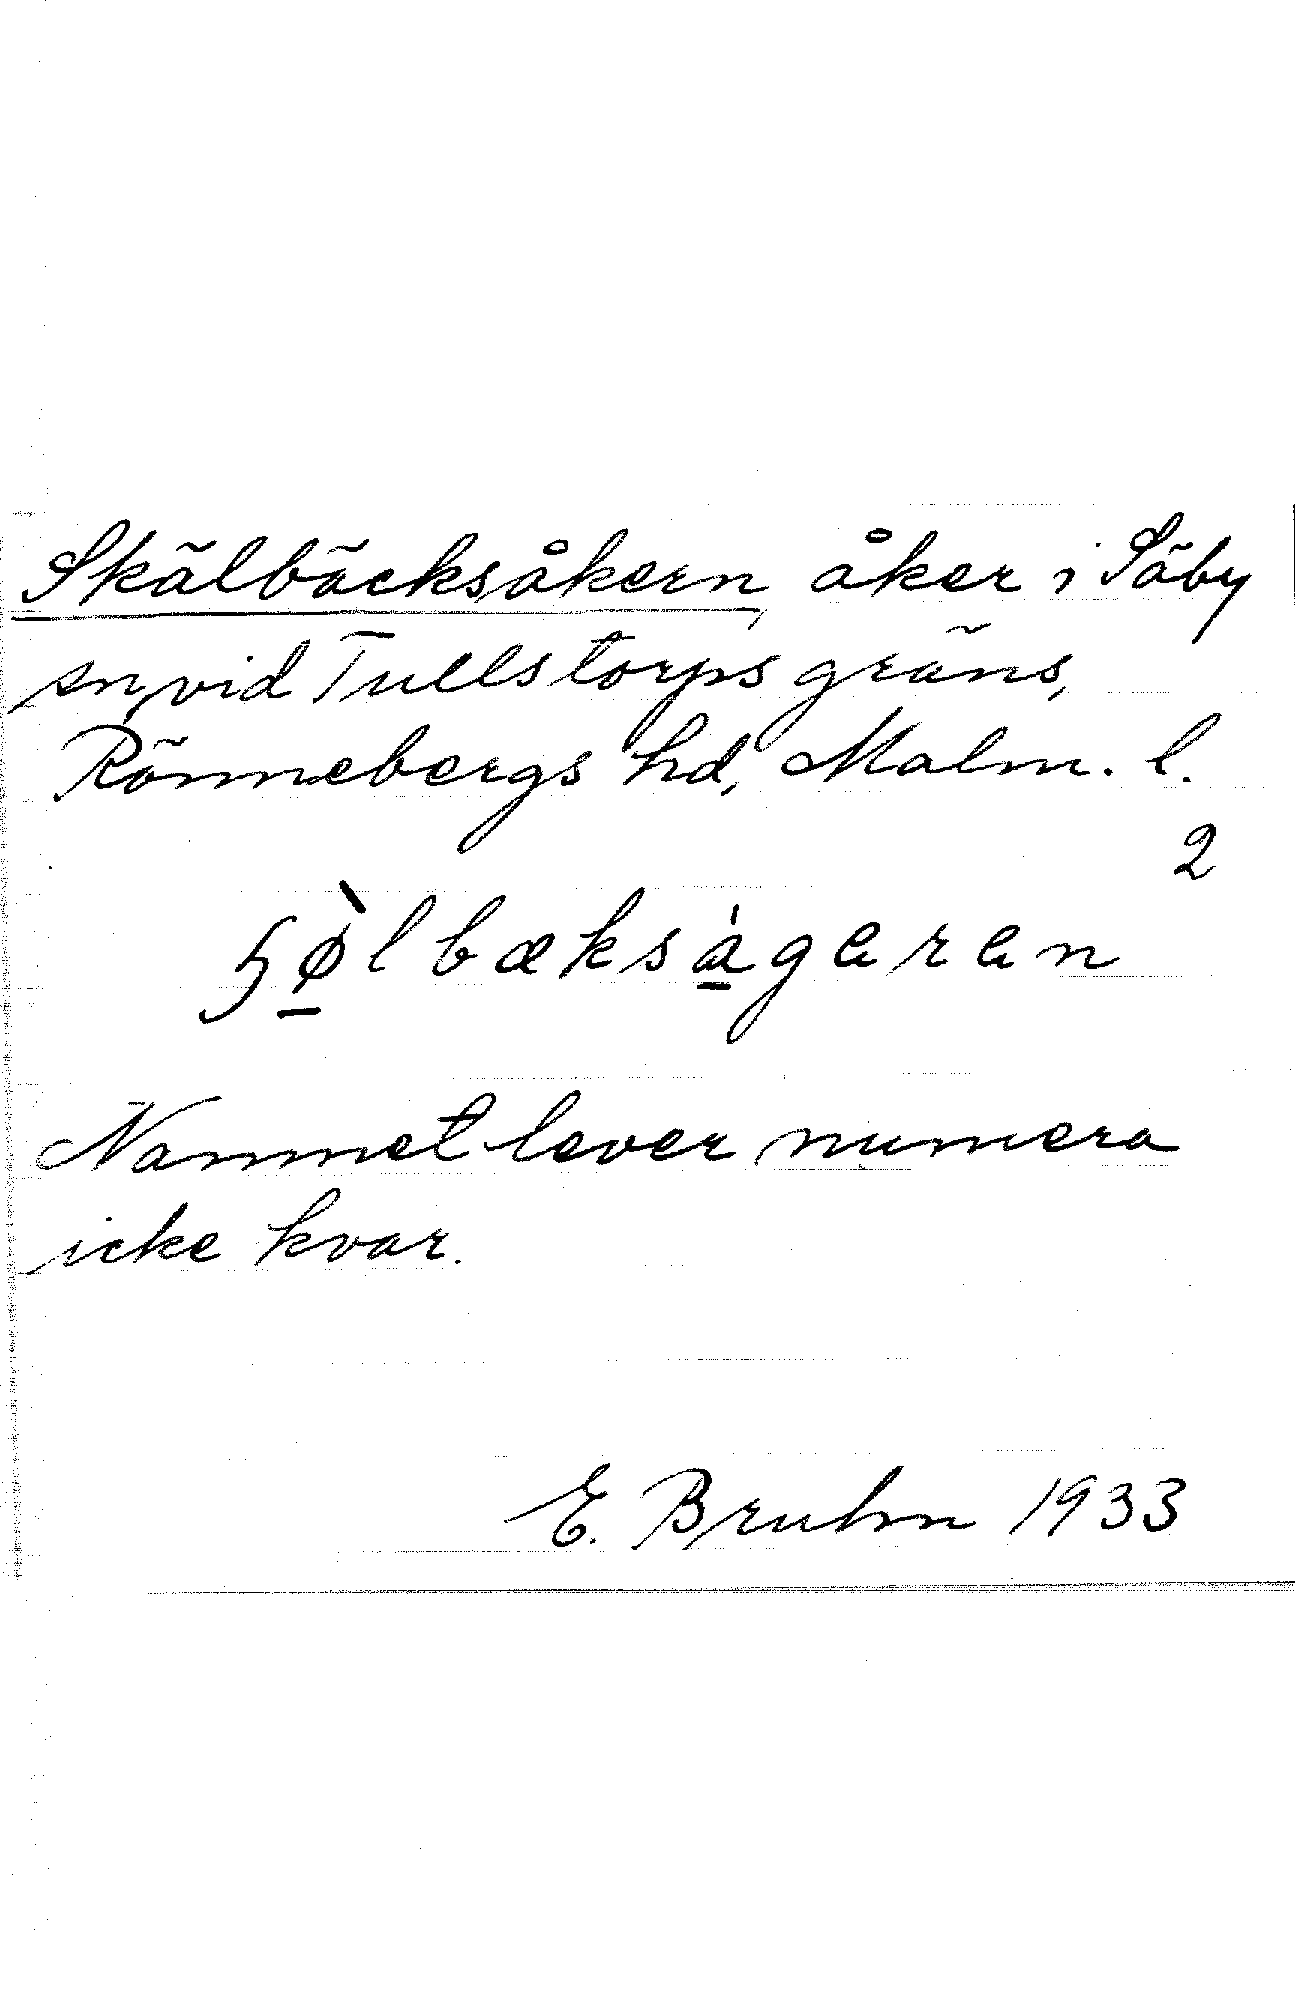 Skälbäcksåkern, åker i Säby
sn, vid Tullstorps gräns,
Rönnebergs hd, Malm. l.
2
ɧø̠̀lbæksà̠gərən
Namnet lever numera
icke kvar.
E. Bruhn 1933